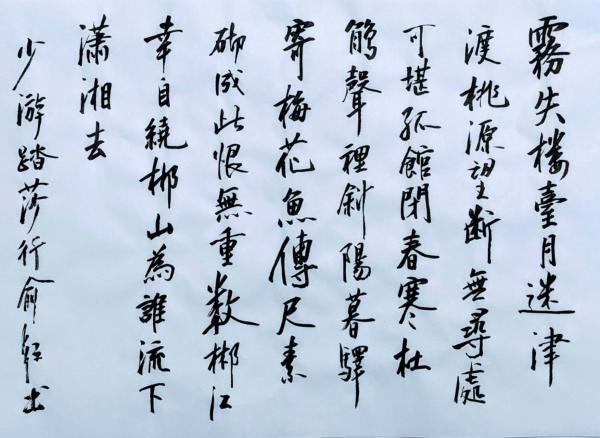 霧失楼臺月迷津
渡桃源望断無尋處
可堪孤館閉春寒杜
鵑聲裡斜陽暮驛
寄梅花魚傳尺素
砌成此恨無重数郴江
幸自繞郴山為誰流下
瀟湘去
少游踏莎行俞軒书